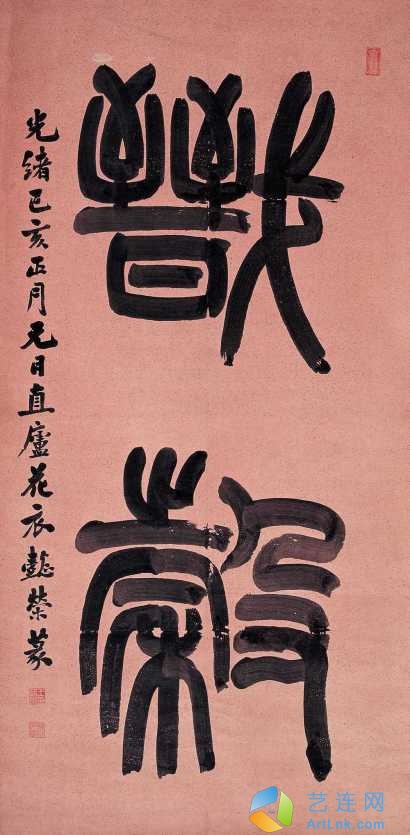 戩穀
光緒己亥正月元日直廬花衣懿榮篆
艺连网
ArtLnk.com